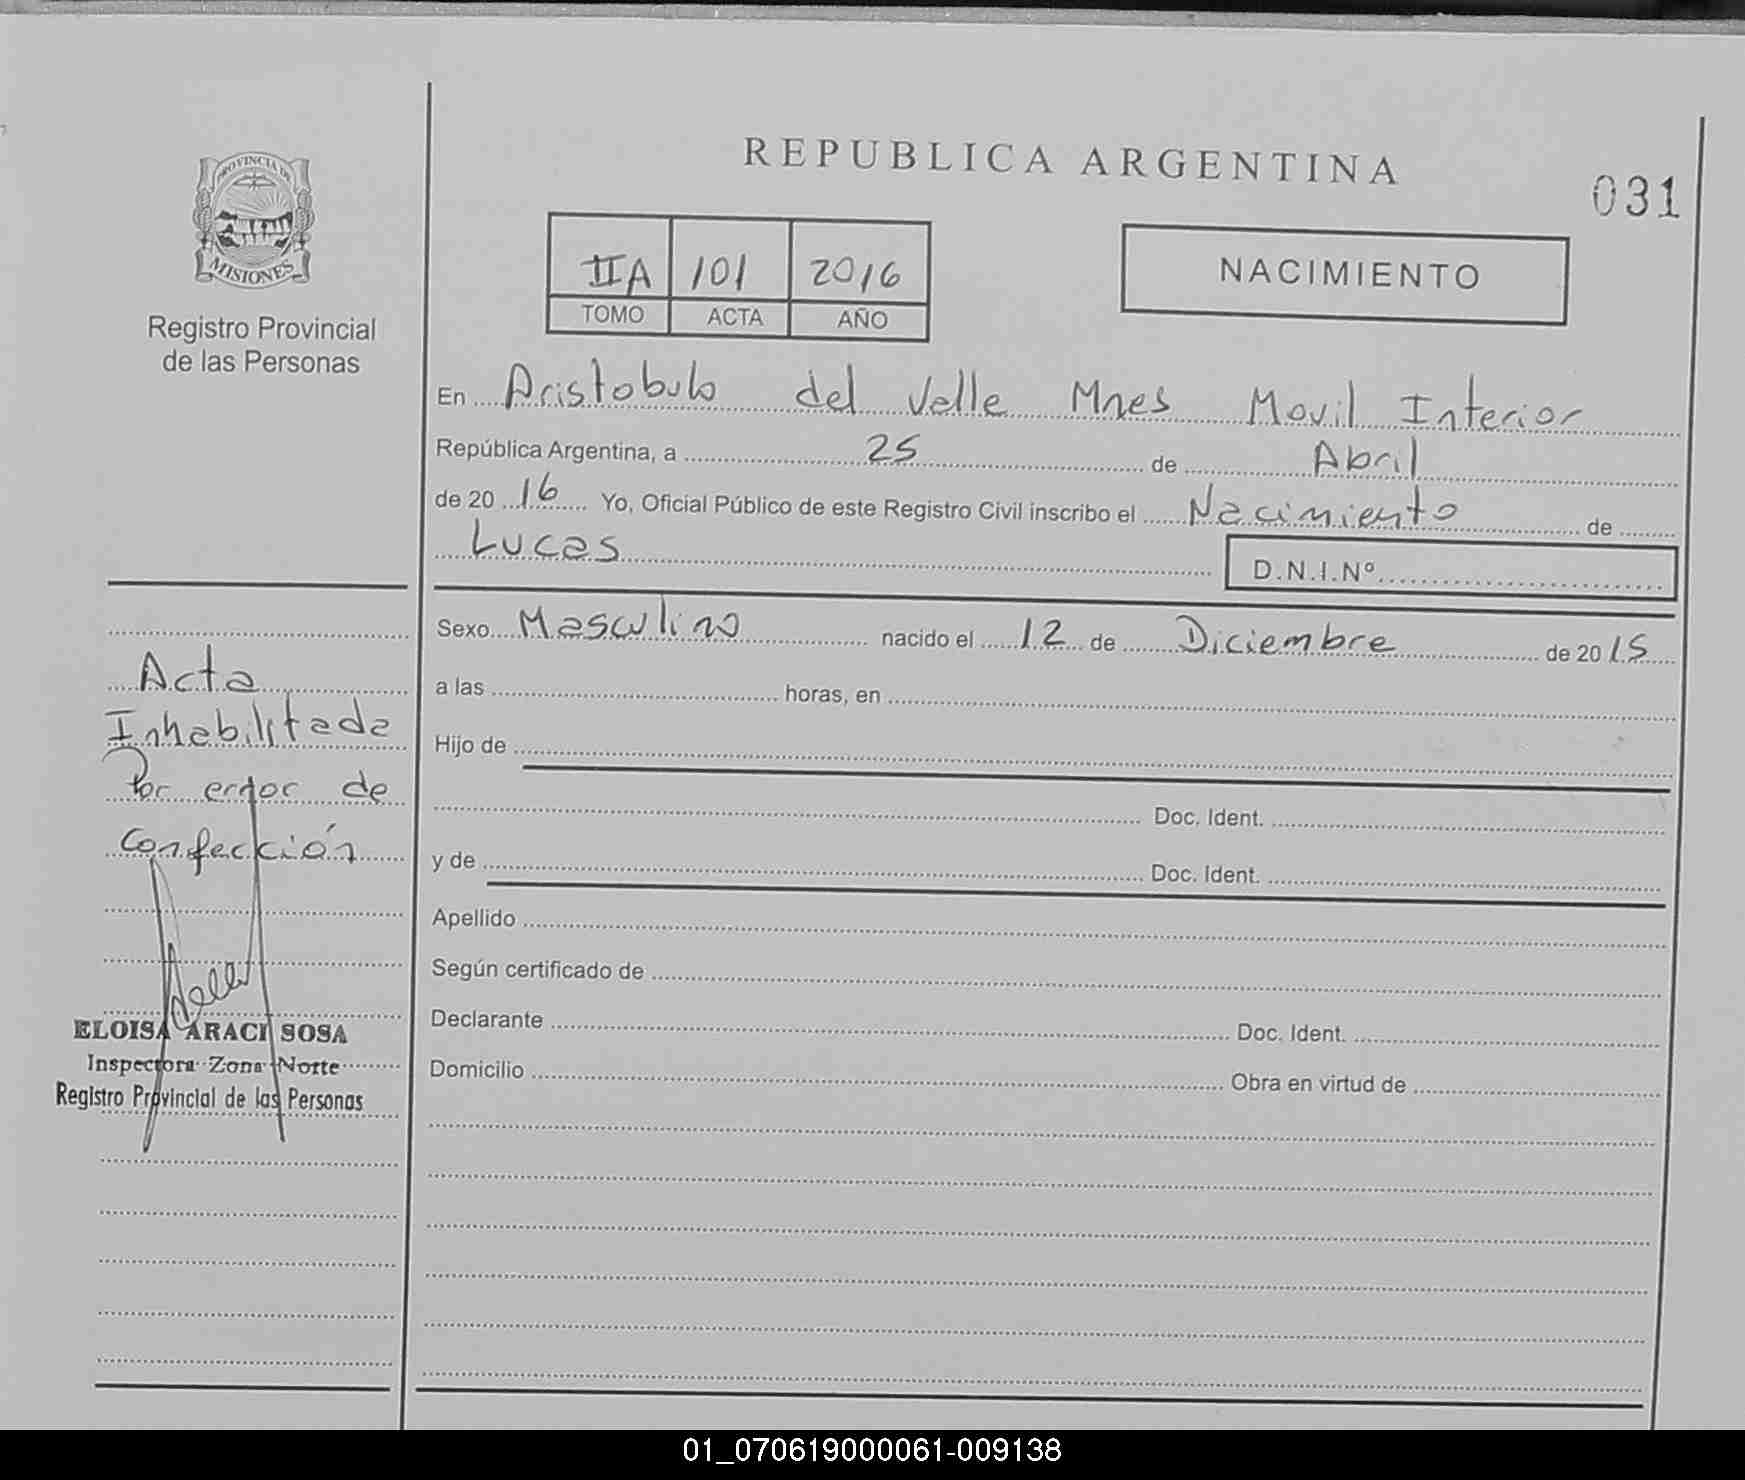 REPUBLICA ARGENTINA
031
PROVINCIA DE
MISIONES
Registro Provincial
de las Personas
IIA 101 2016
TOMO ACTA AÑO
NACIMIENTO
En Aristobulo del Valle Mnes Movil Interior
República Argentina, a 25 de Abril
de 20 16 Yo, Oficial Público de este Registro Civil inscribo el Nacimiento de
Lucas
D.N.I.Nº
Sexo Masculino nacido el 12 de Diciembre de 20 15
a las horas, en
Hijo de
Doc. Ident.
y de Doc. Ident.
Apellido
Según certificado de
Declarante Doc. Ident.
Domicilio Obra en virtud de
Acta
Inhabilitada
Por error de
Confección
ELOISA ARACI SOSA
Inspectora Zona Norte
Registro Provincial de las Personas
01_070619000061-009138